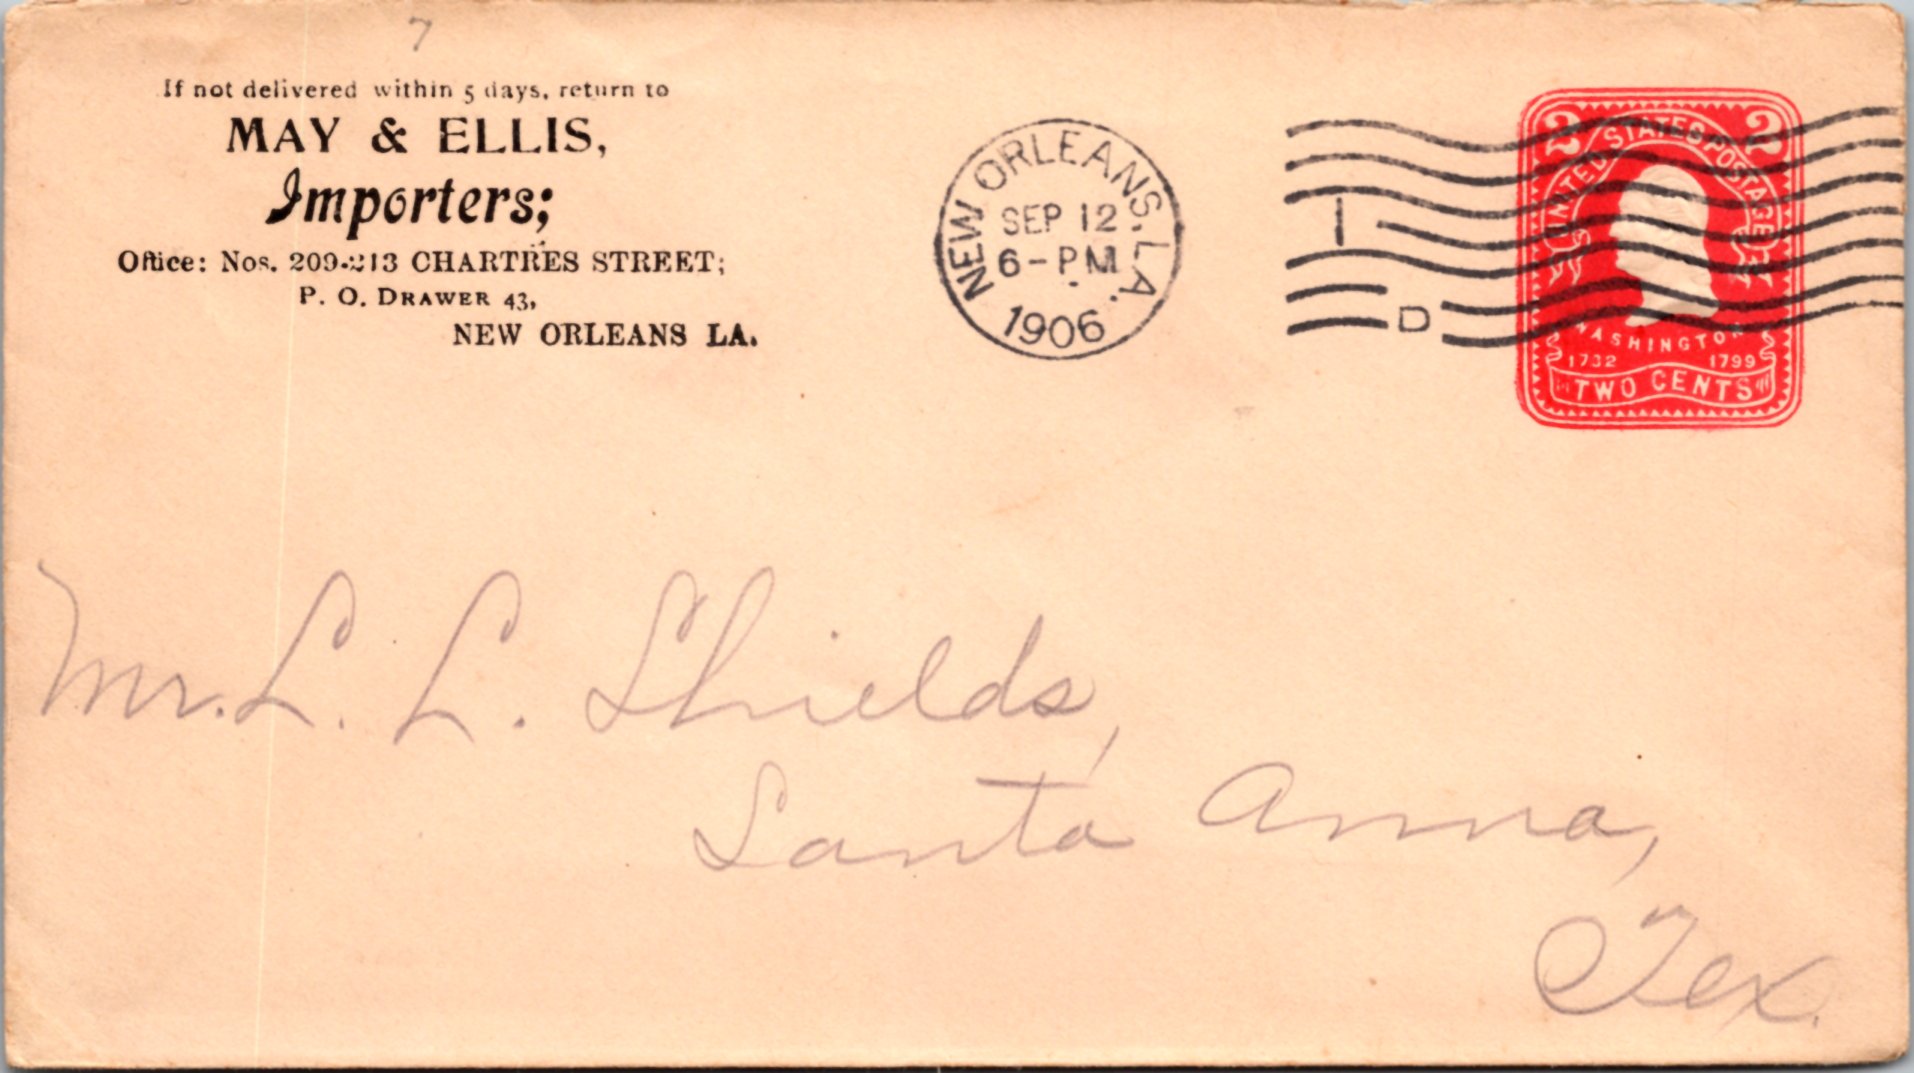 7
If not delivered within 5 days, return to
MAY & ELLIS,
Importers;
Office: Nos. 209-213 CHARTRES STREET;
P. O. DRAWER 43,
NEW ORLEANS LA.
NEW ORLEANS, LA.
SEP 12
6-PM
1906
1
D
2 2
UNITED STATES POSTAGE
WASHINGTON
1732 1799
TWO CENTS
Mr. L. L. Shields,
Santa Anna,
Tex.